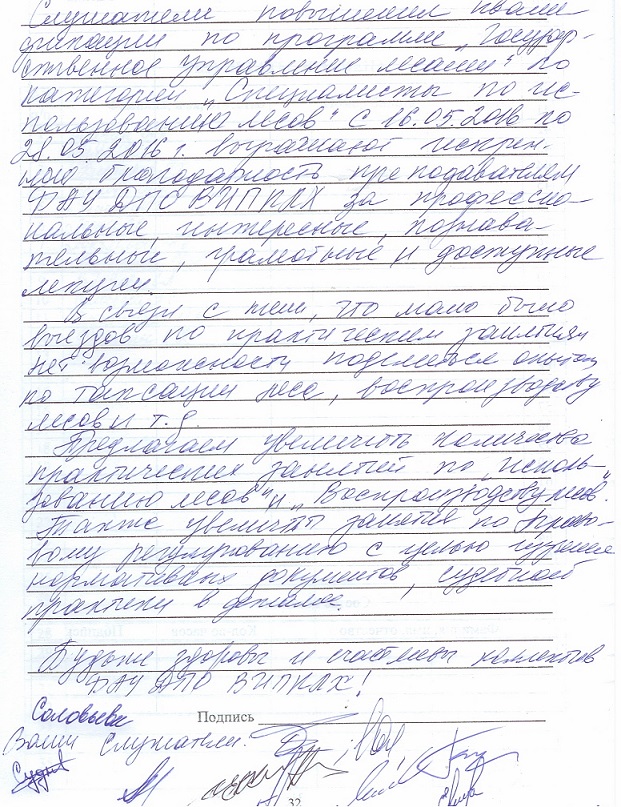 Слушатели повышения квали
фикации по программе „Государ-
ственное управление лесами“ по
категории „Специалисты по ис-
пользованию лесов“ с 16.05.2016 по
28.05.2016 г. выражают искрен-
нюю благодарность преподавателям
ФАУ ДПО ВИПКЛХ за профессио-
нальные, интересные, познава-
тельные, грамотные и доступные
лекции.
В связи с тем, что мало было
выездов по практическим занятиям
нет возможности поделиться опытом
по таксации леса, воспроизводству
лесов и т.д.
Предлагаем увеличить количество
практических занятий по „исполь-
зованию лесов“ и „Воспроизводству лесов“.
Также увеличить занятия по право-
вому регулированию с целью изучения
нормативных документов, судебной
практики в
Будьте здоровы и счастливы коллектив
ФАУ ДПО ВИПКЛХ!
Соловьева Подпись
Ваши слушатели:
32